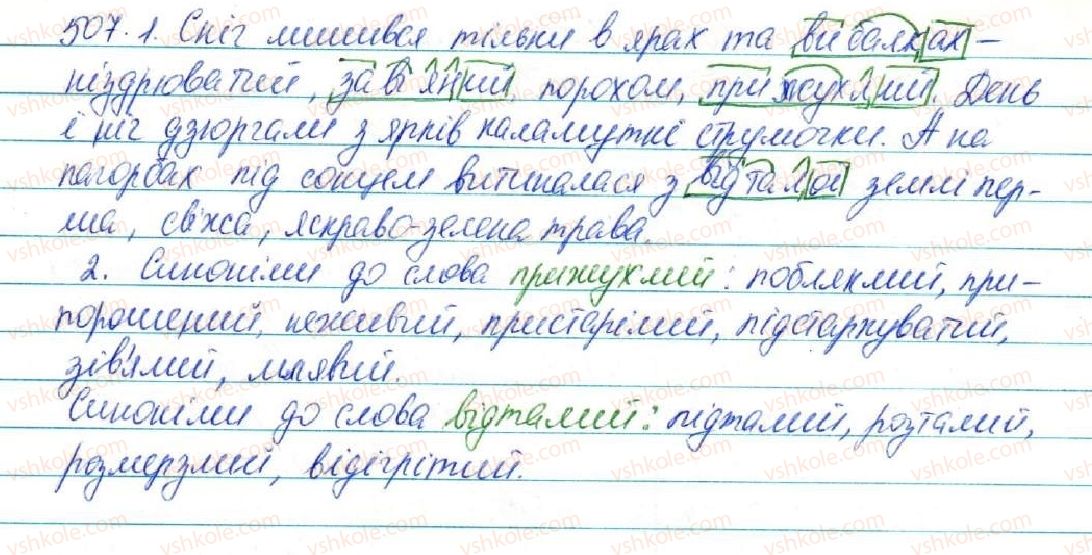 507. 1. Сніг лишився тільки в ярах та вибалках –
ніздрюватий, завіяний, порохом, прижухлий. День
і ніч дзюргали з ярків каламутні струмочки. А на
пагорбах під сонцем витикалася з відталої землі пер-
ша, свіжа, яскраво-зелена трава.
2. Синоніми до слова прижухлий: побляклий, при-
порошений, неживий, пристарілий, підстаркуватий,
зів'ялий, млявий.
Синоніми до слова відталий: підталий, розталий,
розмерзлий, відігрітий.